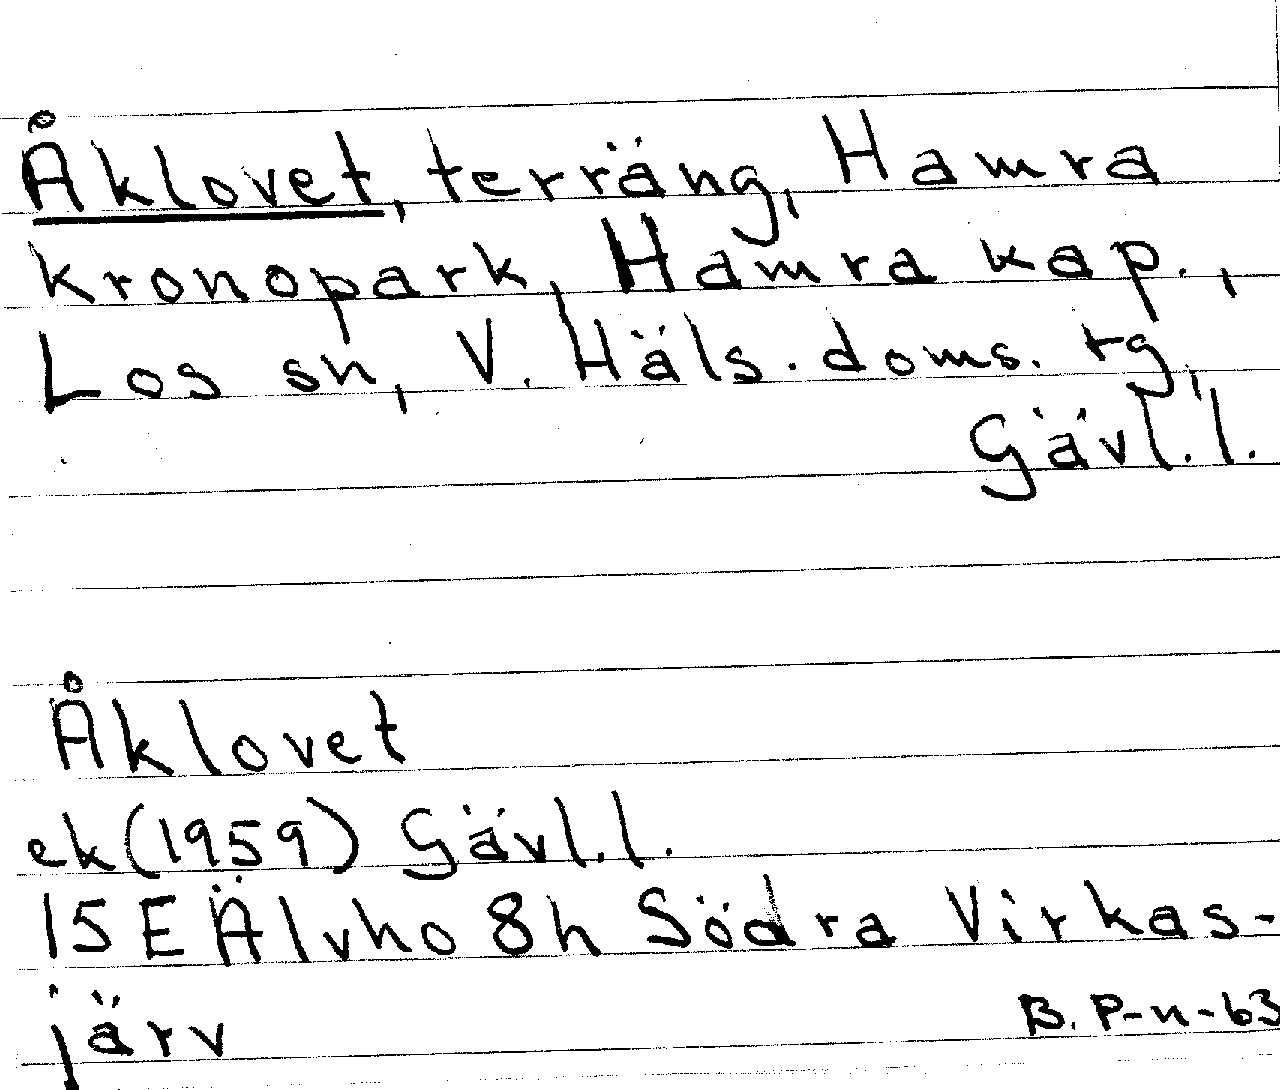 Åklovet, terräng, Hamra
kronopark, Hamra kap.,
Los sn, V. Häls. doms. tg,
Gävl.l.
Åklovet
ek(1959) Gävl.l.
15E Älvho 8h Södra Virkas-
järv
B. P-n-63